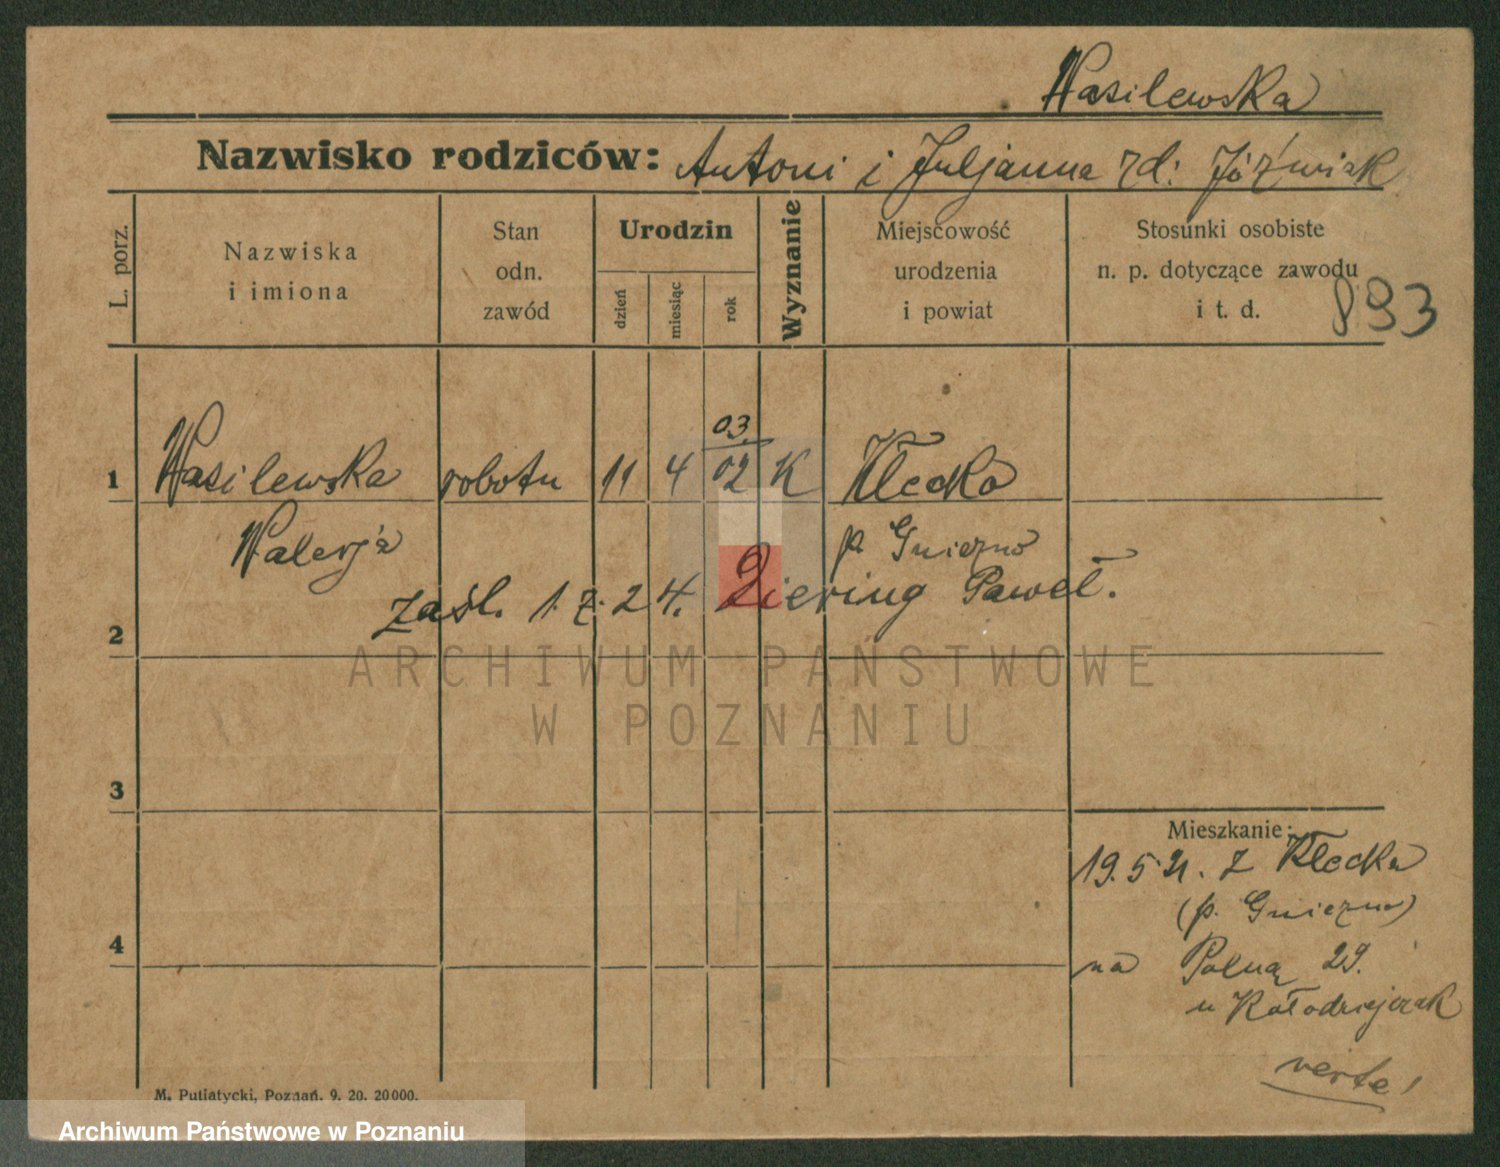 Wasilewska
Nazwisko rodziców: Antoni i Juljanna zd: Jóźwiak
L. porz.
Nazwiska
i imiona
Stan
odn.
zawód
Urodzin
dzień
miesiąc
rok
Wyznanie
Miejscowość
urodzenia
i powiat
Stosunki osobiste
n. p. dotyczące zawodu
i t. d.
893
03
1 Wasilewska robotn 11 4 02 K Kłecko
Walerja p. Gniezno
zaśl. 1. 7. 24. Ziering Paweł.
2
3
Mieszkanie:
19.5 21. z Kłecka
(p. Gniezno)
4
na Polną 29.
u Kołodziejczak
verte!
M. Putiatycki, Poznań. 9. 20. 20000.
ARCHIWUM PAŃSTWOWE
W POZNANIU
Archiwum Państwowe w Poznaniu